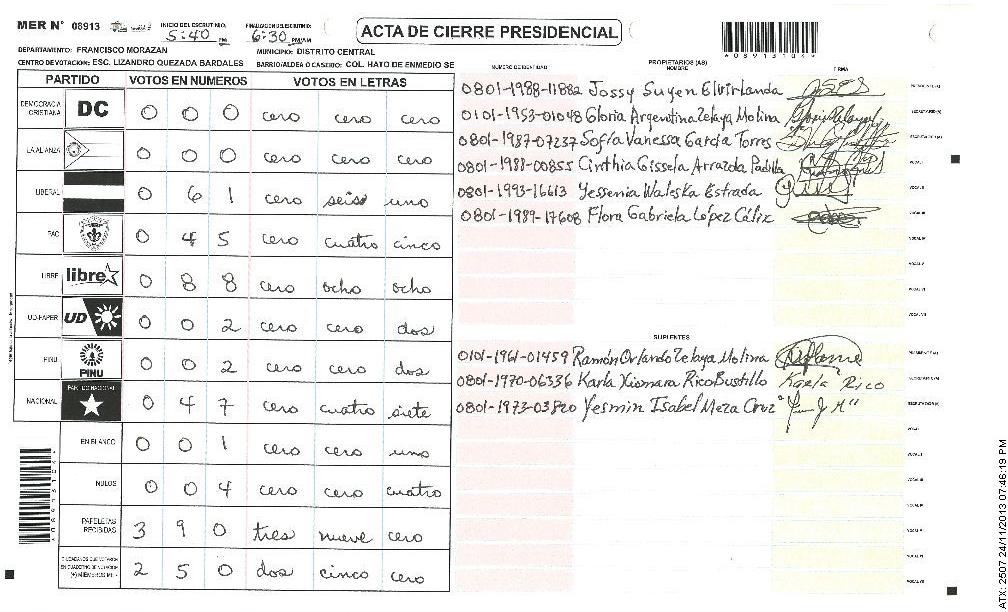 MER N° 08913
INICIO DEL ESCRUTINIO:
5:40 PM
FINALIZACION DEL ESCRUTINIO:
6:30 PM/AM
ACTA DE CIERRE PRESIDENCIAL
*08913104*
DEPARTAMENTO: FRANCISCO MORAZAN
MUNICIPIO: DISTRITO CENTRAL
CENTRO DE VOTACION: ESC. LIZANDRO QUEZADA BARDALES
BARRIO/ALDEA O CASERIO: COL. HATO DE ENMEDIO SE
PARTIDO VOTOS EN NUMEROS VOTOS EN LETRAS
DEMOCRACIA CRISTIANA DC 0 0 0 cero cero cero
LA ALIANZA 0 0 0 cero cero cero
LIBERAL 0 6 1 cero seis uno
PAC 0 4 5 cero cuatro cinco
LIBRE libre 0 8 8 cero ocho ocho
UD-FAPER UD 0 0 2 cero cero dos
PINU PINU 0 0 2 cero cero dos
NACIONAL PARTIDO NACIONAL 0 4 7 cero cuatro siete
EN BLANCO 0 0 1 cero cero uno
NULOS 0 0 4 cero cero cuatro
PAPELETAS RECIBIDAS 3 9 0 tres nueve cero
CIUDADANOS QUE VOTARON EN CUADERNO DE VOTACION (+) MIEMBROS MER 2 5 0 dos cinco cero
NUMERO DE IDENTIDAD
PROPIETARIOS (AS)
NOMBRE
FIRMA
0801-1988-11882 Jossy Suyen Elvir Landa PRESIDENTE(A)
0101-1953-01048 Gloria Argentina Zelaya Molina SECRETARIO(A)
0801-1987-07237 Sofía Vanessa García Torres ESCRUTADOR(A)
0801-1988-00855 Cinthia Gissela Arrazola Padilla VOCAL I
0801-1993-16613 Yessenia Waleska Estrada VOCAL II
0801-1989-17608 Flora Gabriela López Cáliz VOCAL III
VOCAL IV
VOCAL V
VOCAL VI
VOCAL VII
SUPLENTES
0101-1961-01459 Ramón Orlando Zelaya Molina PRESIDENTE(A)
0801-1970-06336 Karla Xiomara Rico Bustillo Karla Rico SECRETARIO(A)
0801-1973-03820 Yesmin Isabel Meza Cruz ESCRUTADOR(A)
VOCAL I
VOCAL II
VOCAL III
VOCAL IV
VOCAL V
VOCAL VI
VOCAL VII
ATX: 2507 24/11/2013 07:46:19 PM